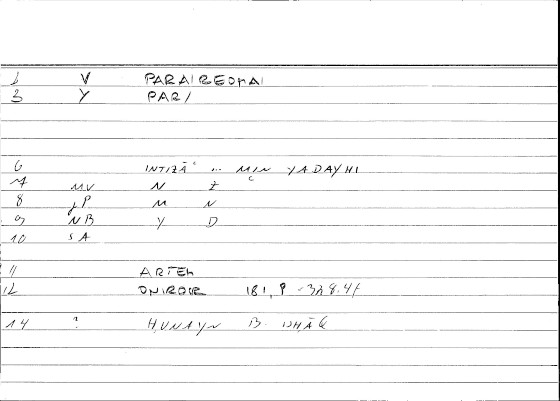 1 V PARAIREOMAI
3 Y PAR/
6 INTIZĀʿ ... MIN YADAYHI
7 MV N Z ʿ
8 P M N
9 NB Y D
10 SA
11 ARTEM
12 ONIROCR 181, 9 - 328.4/
14 ? ḤUNAYN B. ISḤĀQ